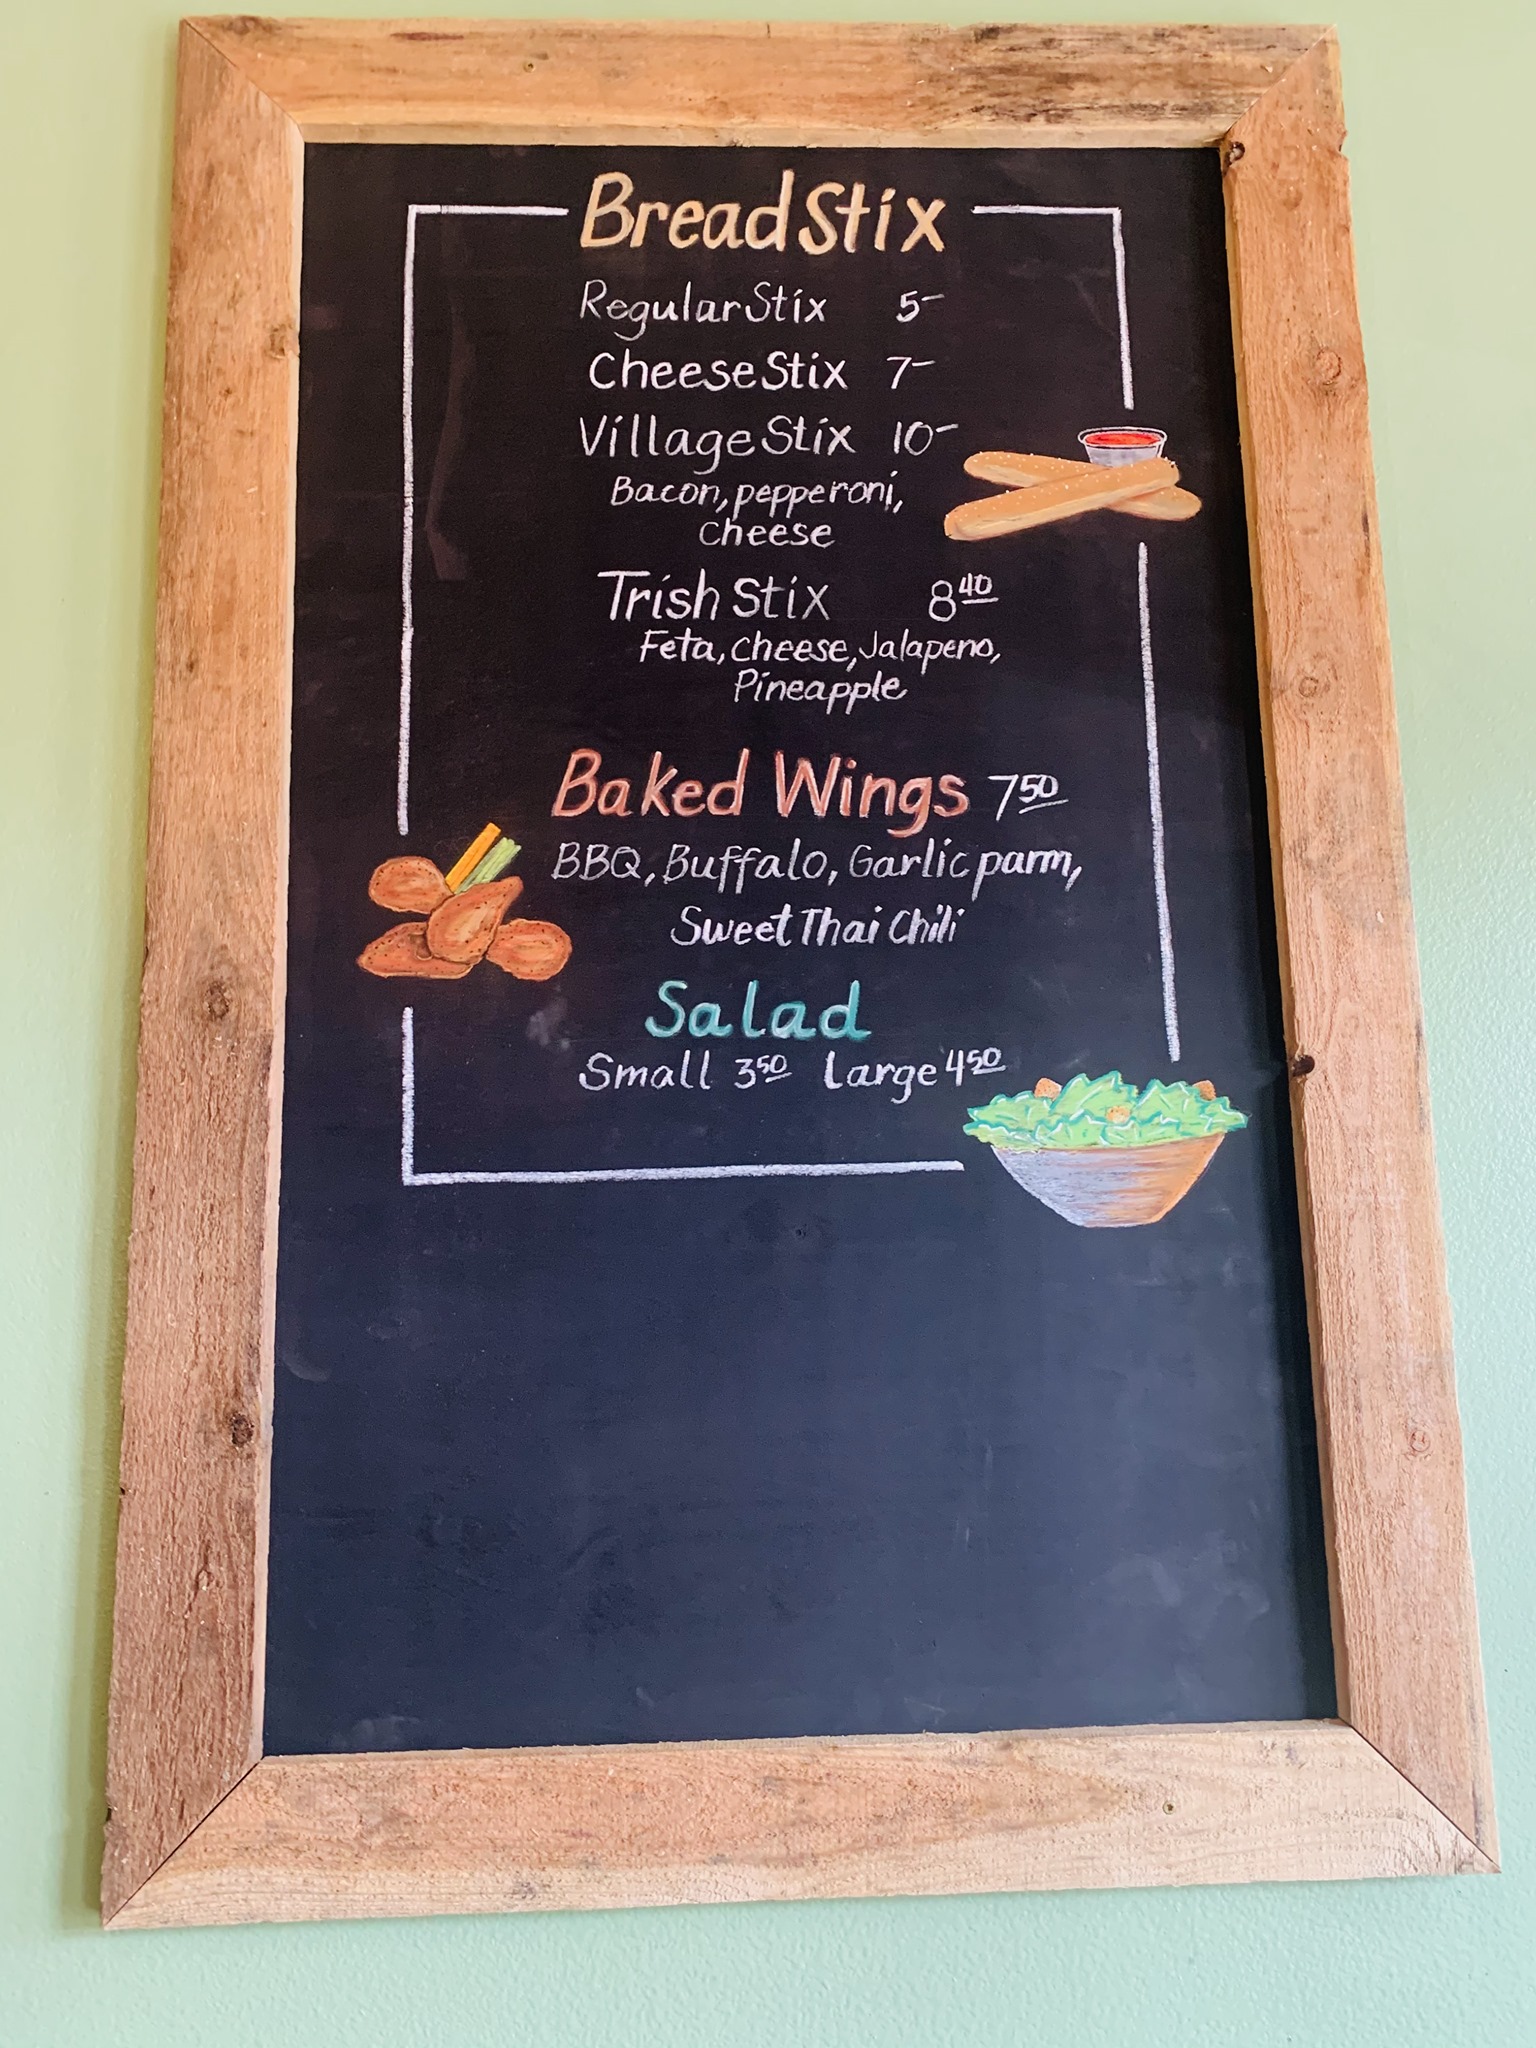 BreadStix
Regular Stix 5-
Cheese Stix 7-
Village Stix 10-
Bacon, pepperoni,
Cheese
Trish Stix 8 40
Feta, Cheese, Jalapeno,
Pineapple
Baked Wings 7 50
BBQ, Buffalo, Garlic parm,
Sweet Thai Chili
Salad
Small 3 50 Large 4 50